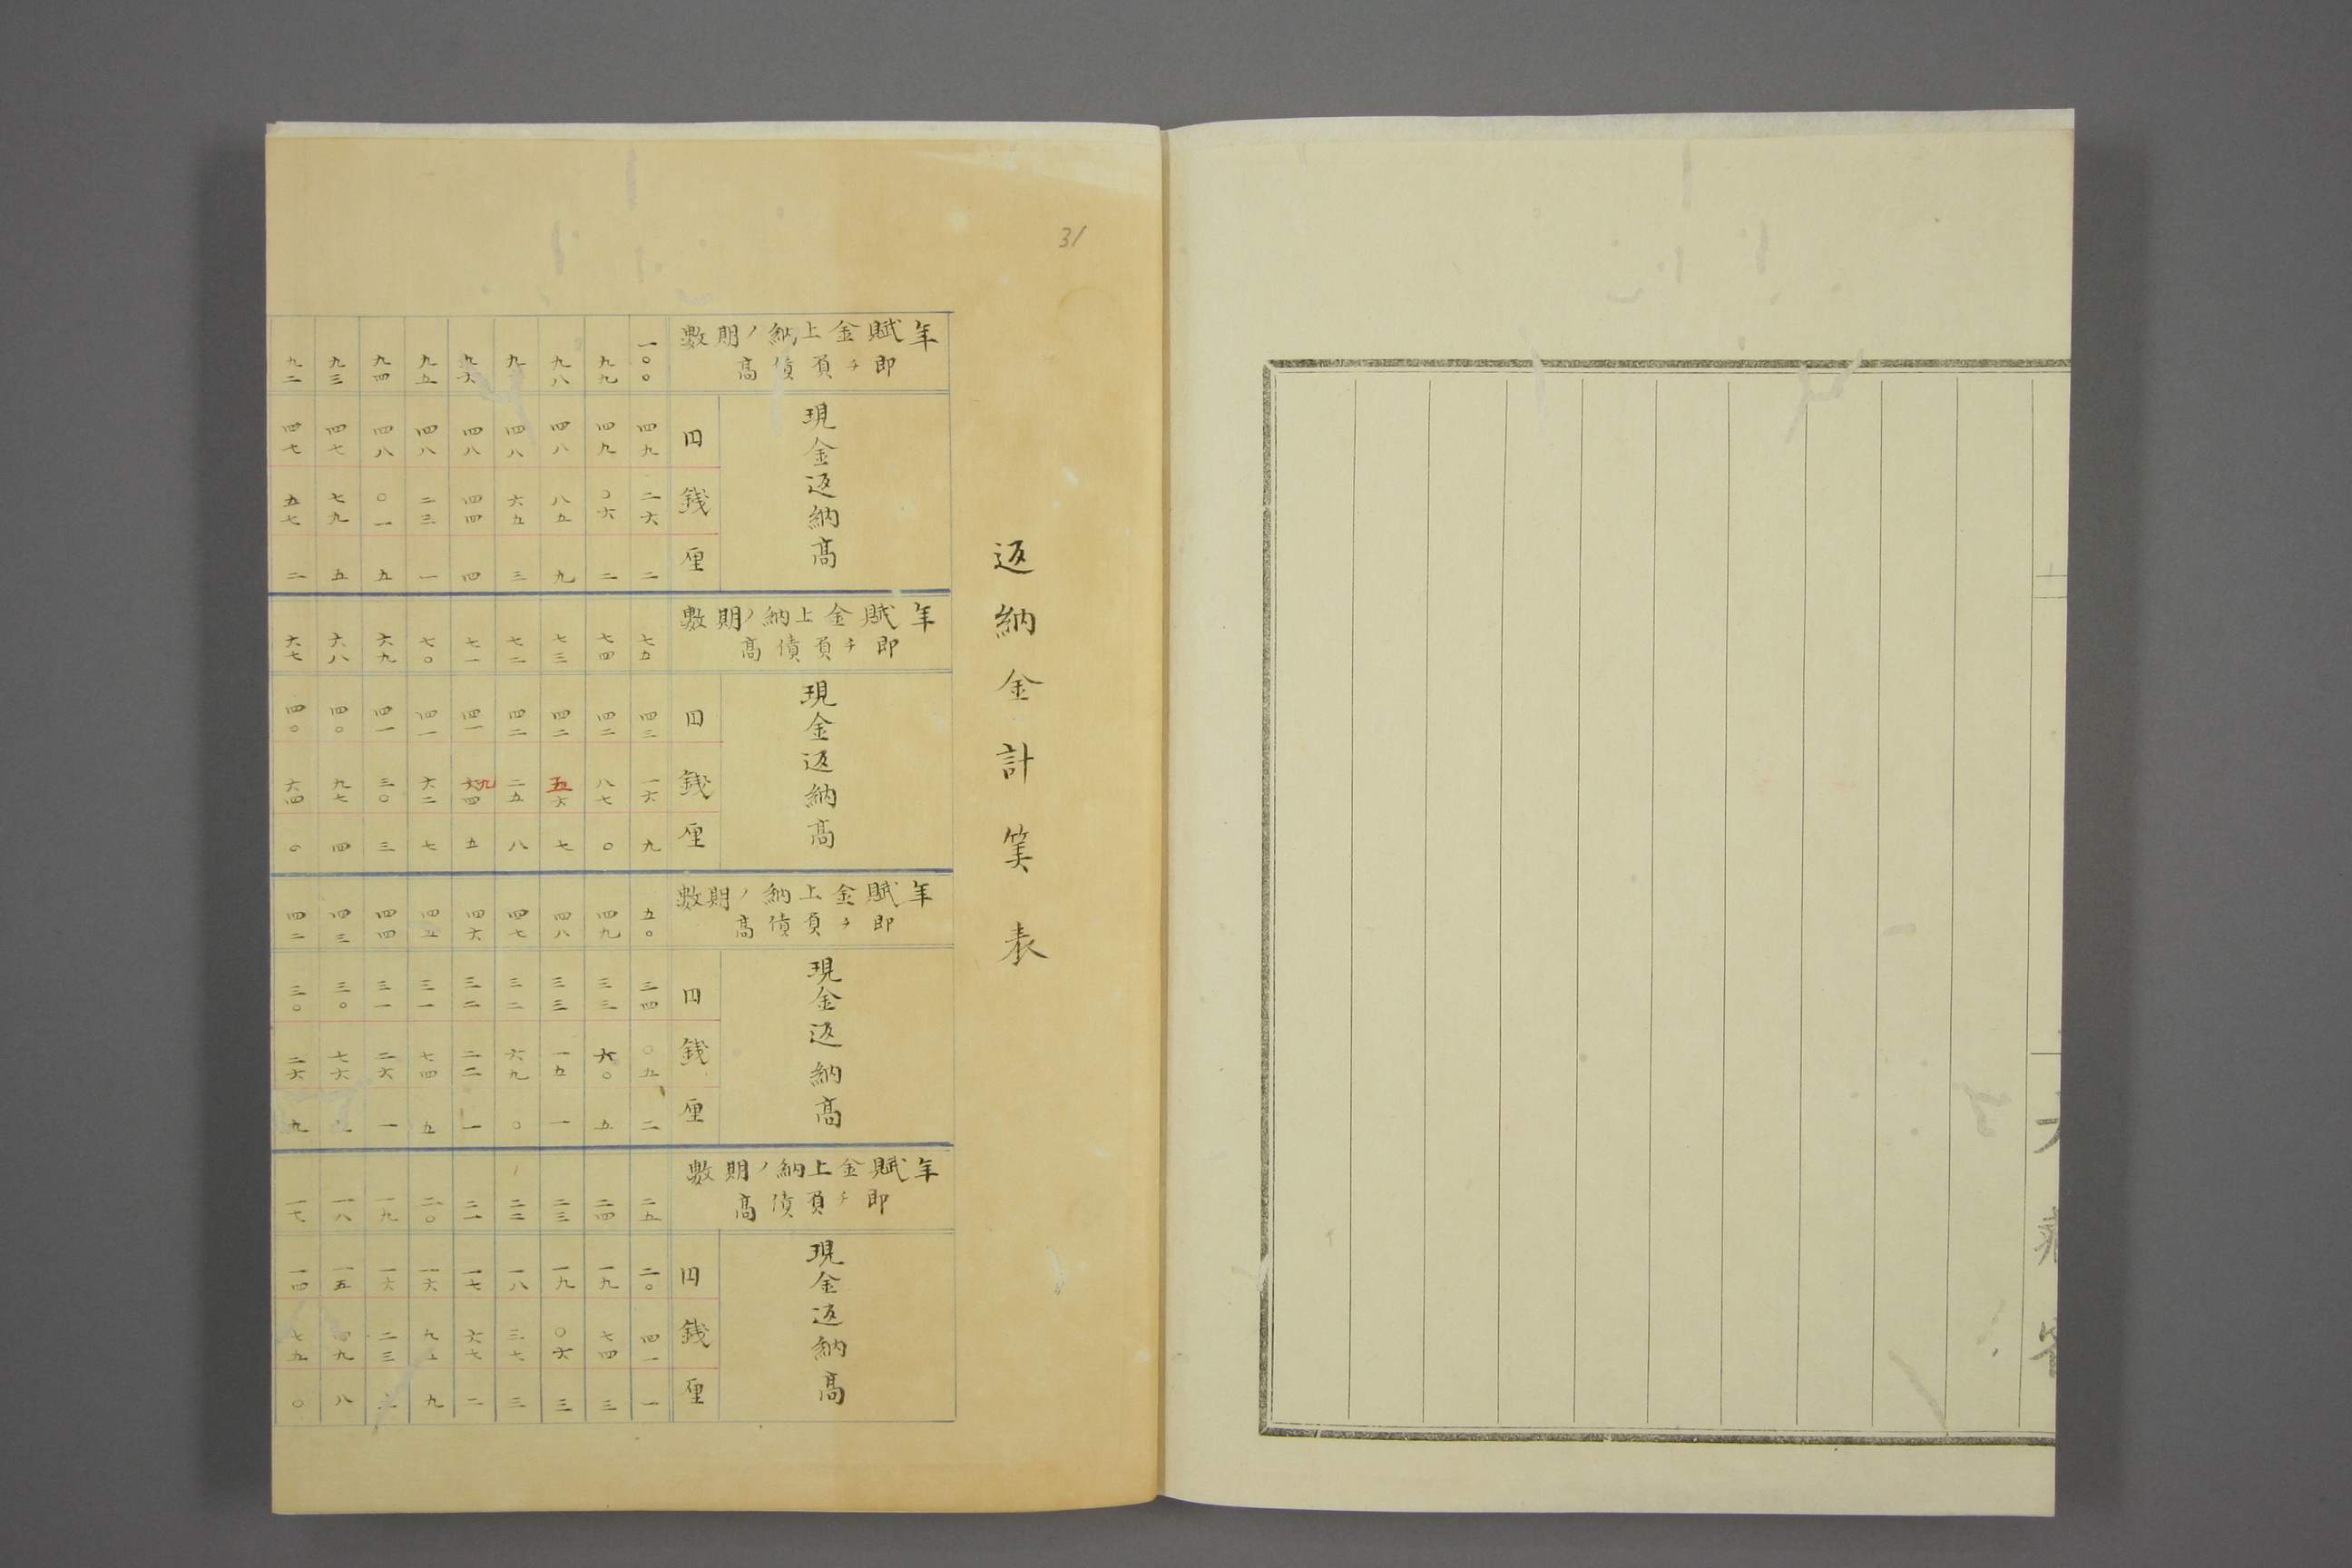 31
返納金計筭表
年賦金上納ノ期數
即チ負債高
現金返納高
円 銭 厘
一〇〇 四九 二六 二
九九 四九 〇六 二
九八 四八 八五 九
九 四八 六五 三
九六 四八 四四 四
九五 四八 二三 一
九四 四八 〇一 五
九三 四七 七九 五
九二 四七 五七 二
年賦金上納ノ期數
即チ負債高
現金返納高
円 銭 厘
七五 四三 一六 九
七四 四二 八七 〇
七三 四二 五六 七
七二 四二 二五 八
七一 四一 九四 五
七〇 四一 六二 七
六九 四一 三〇 三
六八 四〇 九七 四
六七 四〇 六四 〇
年賦金上納ノ期數
即チ負債高
現金返納高
円 銭 厘
五〇 三四 〇五 二
四九 三三 六〇 五
四八 三三 一五 一
四七 三二 六九 〇
四六 三二 二二 一
四五 三一 七四 五
四四 三一 二六 一
四三 三〇 七六
四二 三〇 二六 九
年賦金上納ノ期數
即チ負債高
現金返納高
円 銭 厘
二五 二〇 四一 一
二四 一九 七四 三
二三 一九 〇六 三
二二 一八 三七 三
二一 一七 六七 二
二〇 一六 九五 九
一九 一六 二三 二
一八 一五 四九 八
一七 一四 七五 〇